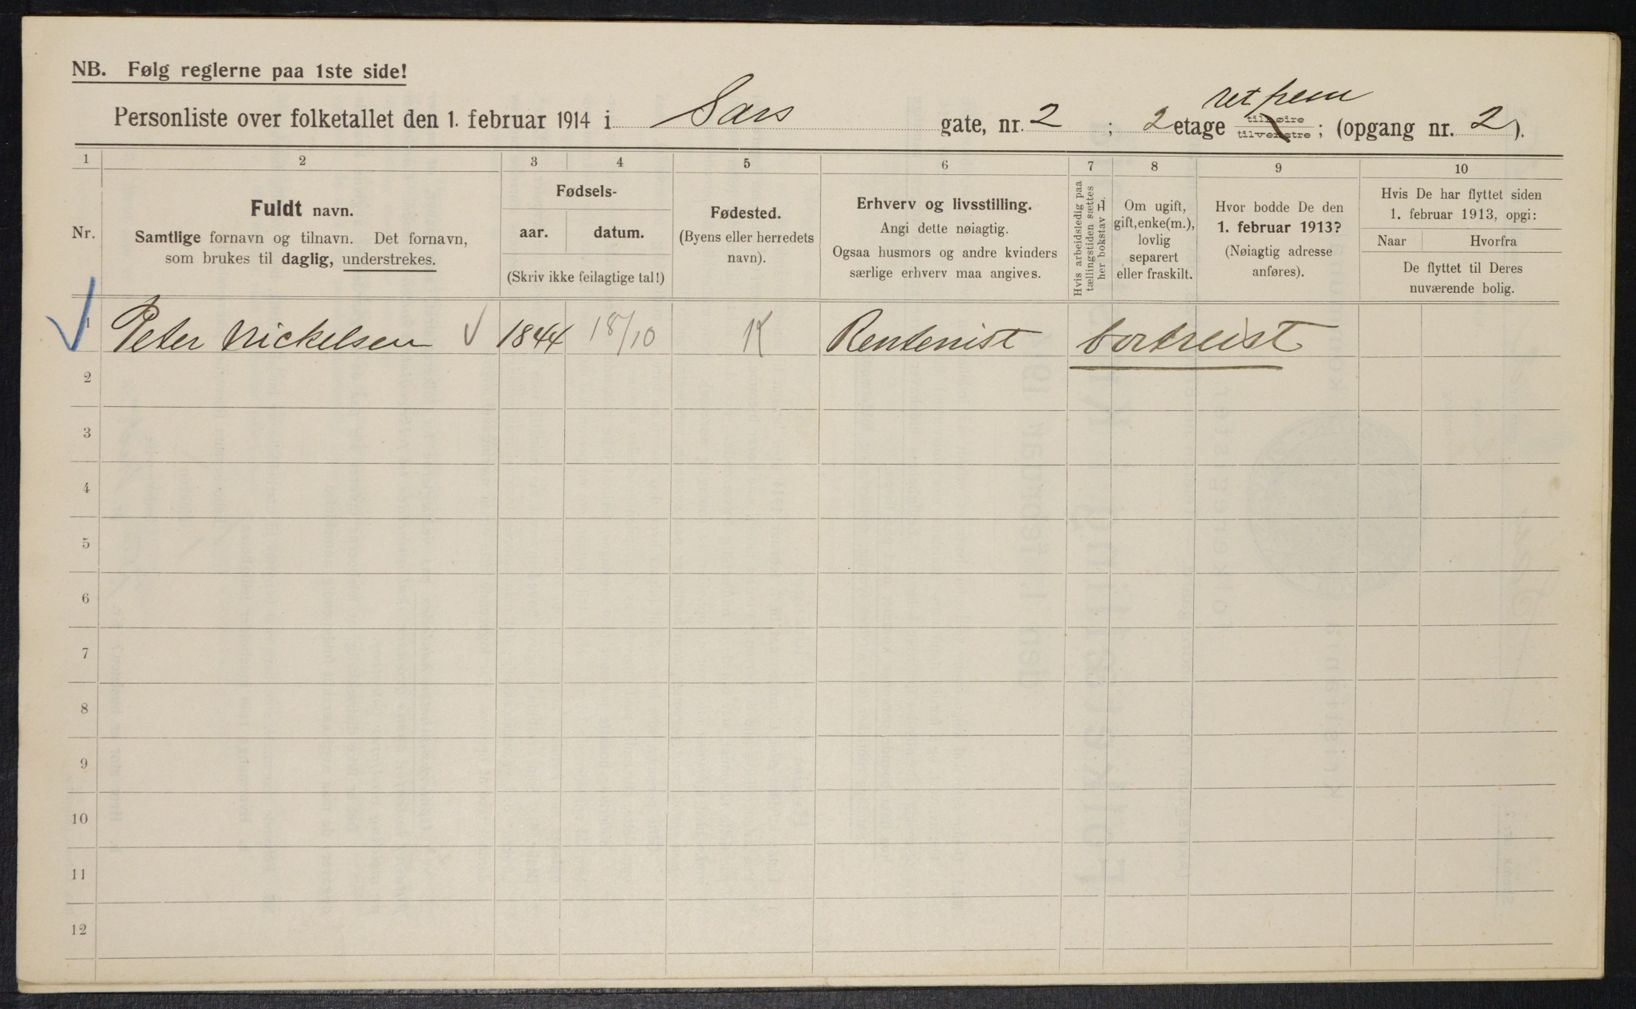 NB. Følg reglerne paa 1ste side!
ret frem
Personliste over folketallet den 1. februar 1914 i Sars gate, nr. 2 ; 2 etage tilhøire tilvenstre ; (opgang nr. 2 ).
1 2 3 4 5 6 7 8 9 10
Nr.
Fuldt navn.
Samtlige fornavn og tilnavn. Det fornavn,
som brukes til daglig, understrekes.
Fødsels-
aar. datum.
(Skriv ikke feilagtige tal!)
Fødested.
(Byens eller herredets
navn).
Erhverv og livsstilling.
Angi dette nøiagtig.
Ogsaa husmors og andre kvinders
særlige erhverv maa angives.
Hvis arbeidsledig paa
tællingstiden sættes
her bokstav L.
Om ugift,
gift, enke(m.),
lovlig
separert
eller fraskilt.
Hvor bodde De den
1. februar 1913?
(Nøiagtig adresse
anføres).
Hvis De har flyttet siden
1. februar 1913, opgi:
Naar Hvorfra
De flyttet til Deres
nuværende bolig.
1 Peter Nickelsen 1844 18/10 K Rentenist bortreist
2
3
4
5
6
7
8
9
10
11
12